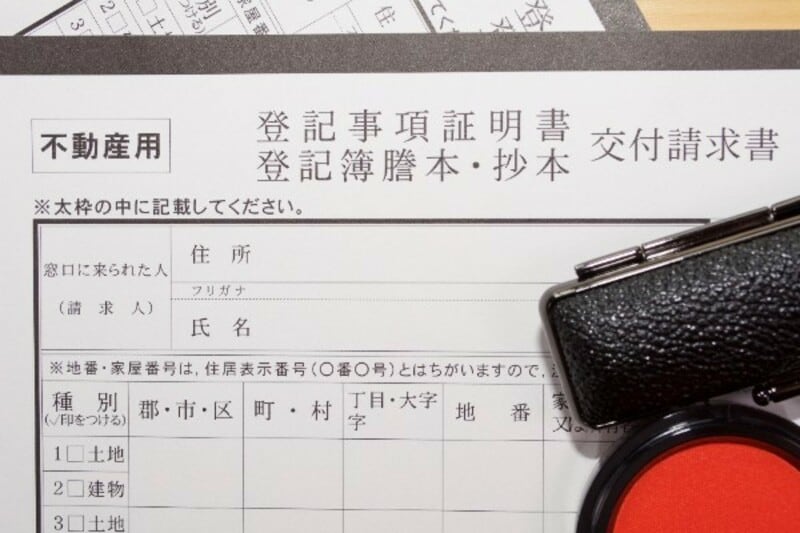 住
別
をつける)
不動産用
登記事項証明書
登記簿謄本・抄本
交付請求書
※太枠の中に記載してください。
窓口に来られた人
(請求人)
住所
フリガナ
氏名
※地番・家屋番号は,住居表示番号(〇番〇号)とはちがいますので,
種別
(√印をつける)
郡・市・区
町・村
丁目・大字
字
地番
家
又は
1□土地
2□建物
3□土地